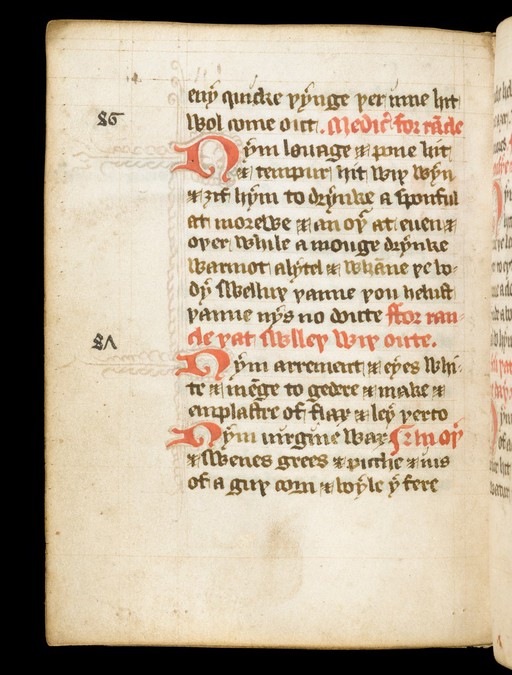 eny quicke þynge þer inne hit
86
wol come out. Medic' for rāde
Nym louage & pone hit
& tempur hit wiþ wyn
& ȝif hym to drynke a sponful
at morewe & anoþ at euen &
oþer while a monge drynke
warmot alytel & whāne þe bo-
dy swelluþ þanne þou helust
þanne nys no doute ffor ran-
cle þat swelleþ wiþ oute.
87
Nym arrement & eyes whi-
te & mēge to gedere & make &
emplastre of flax & ley þerto
Nym uirgine wax
& swenes grees & picche & ius
of a gux corn & boyle þe fere